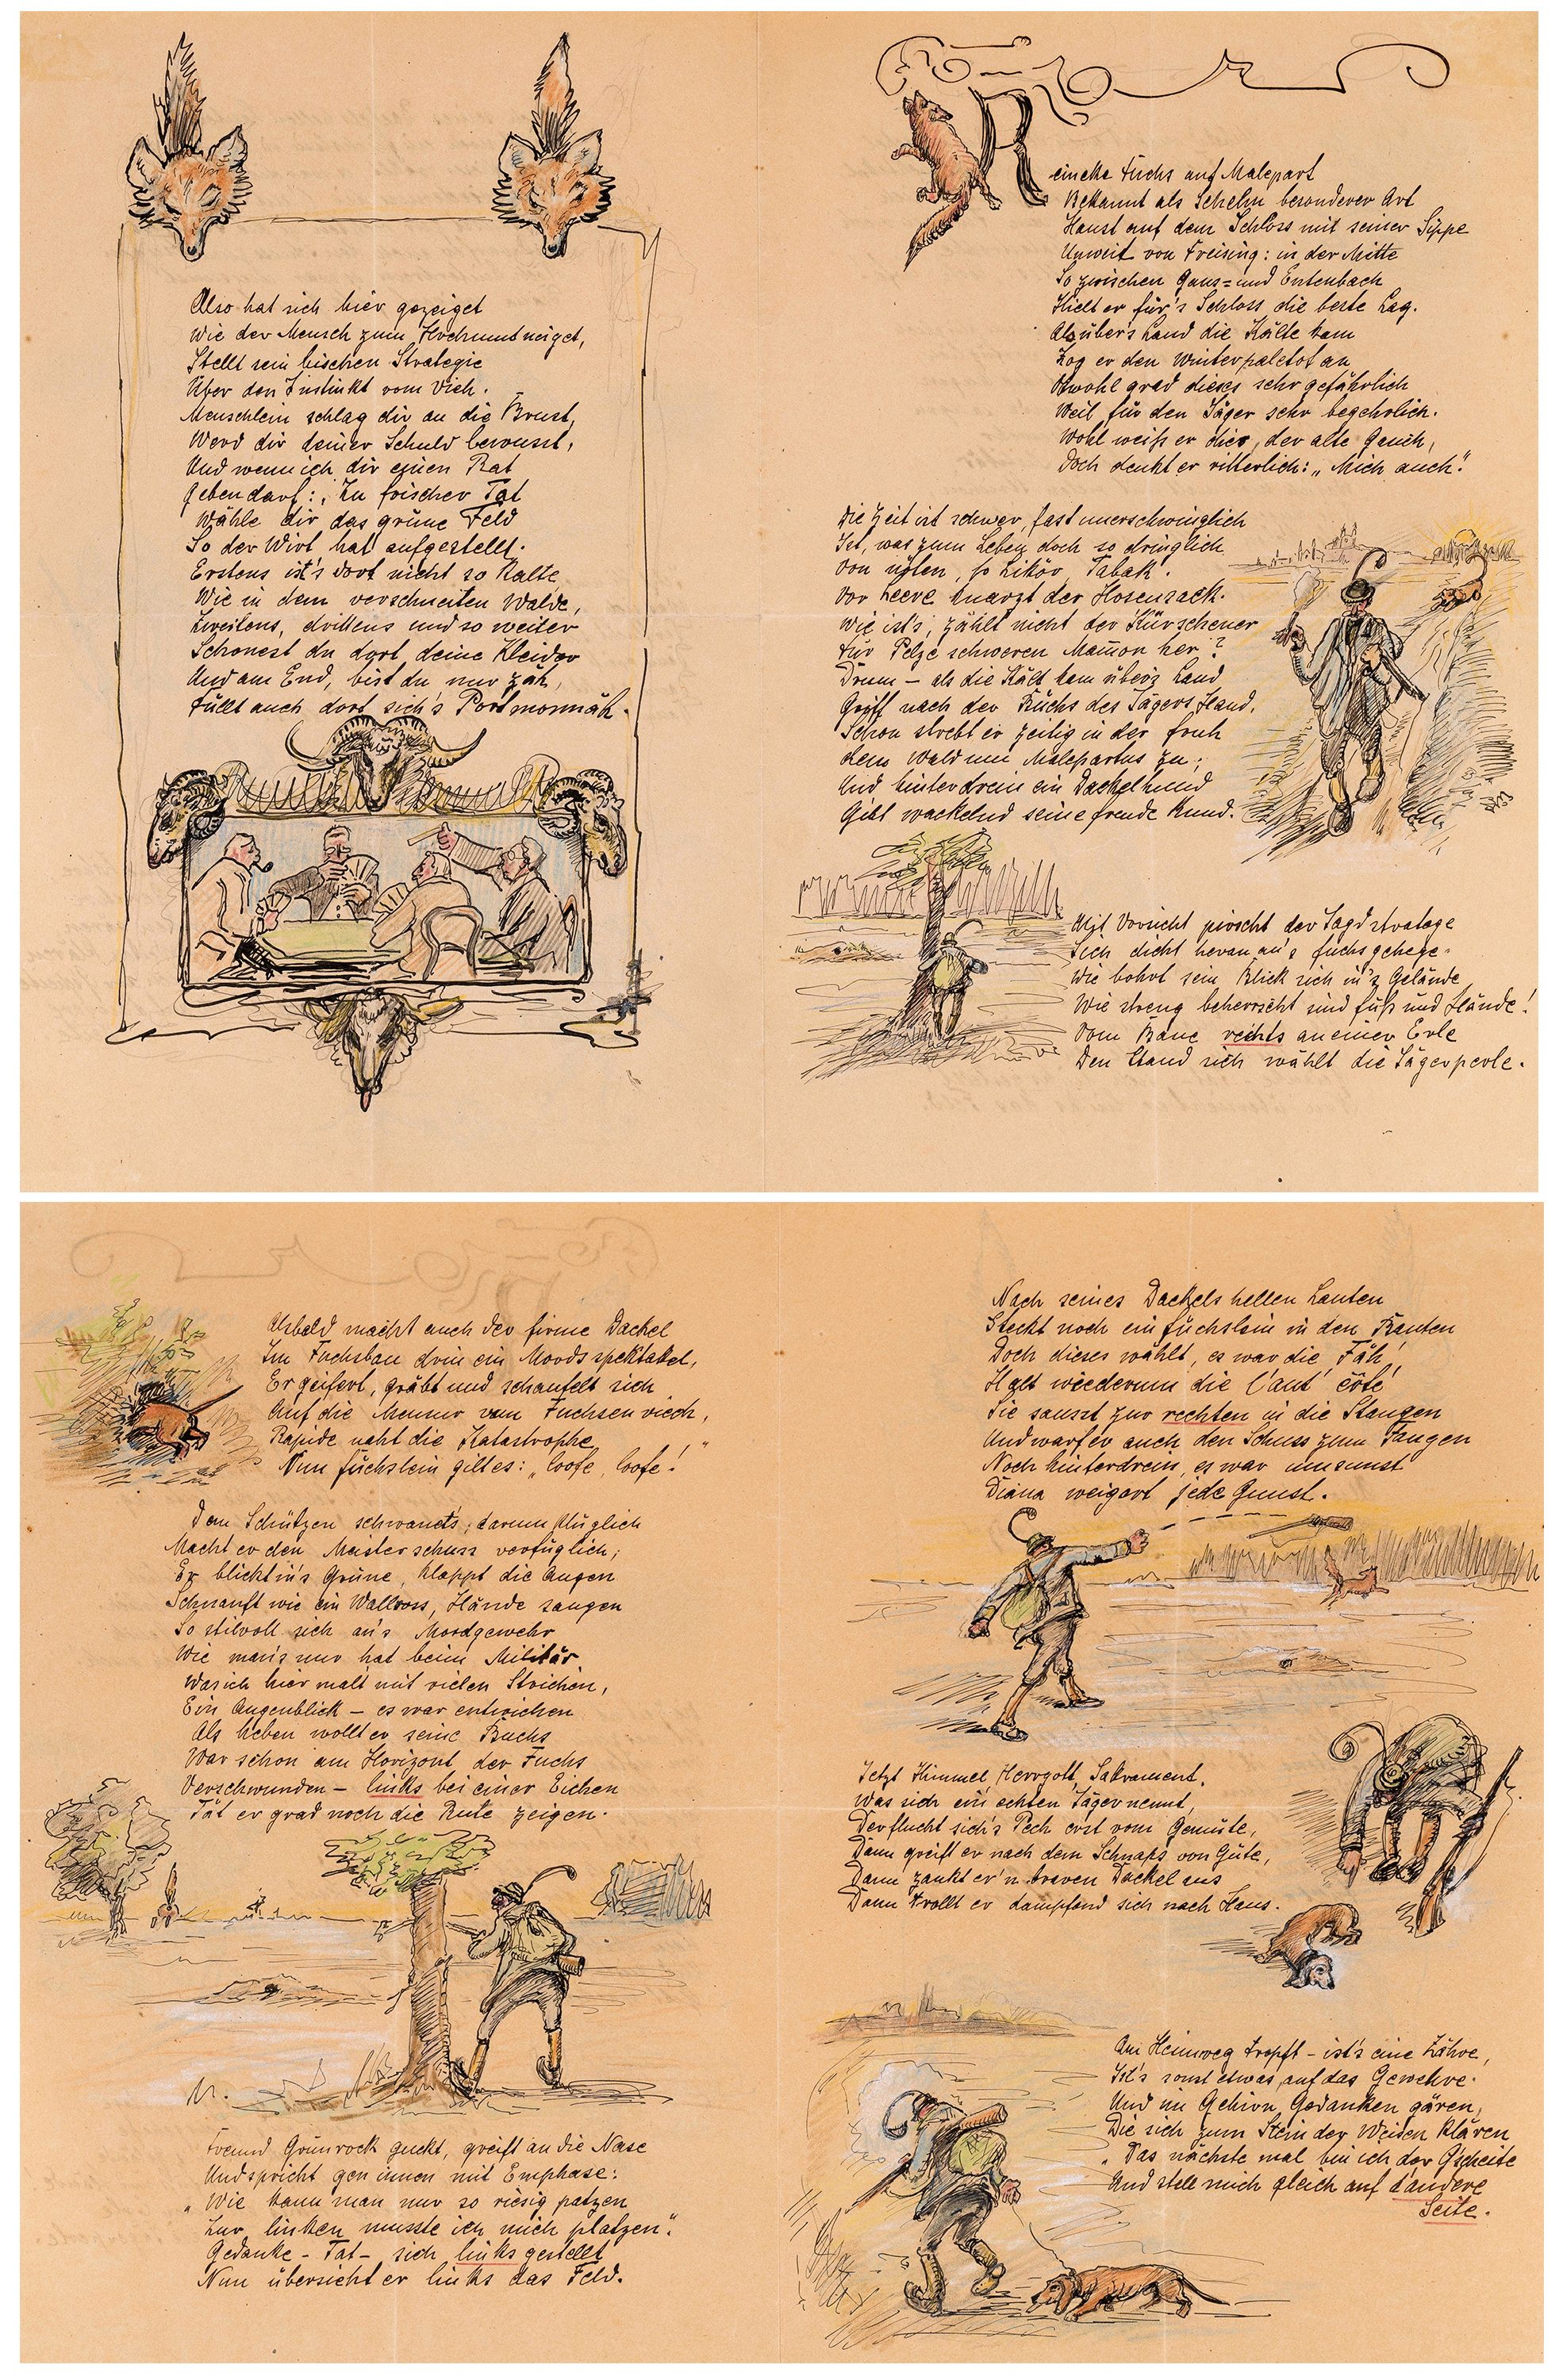 Also hat sich hier gezeiget
Wie der Mensch zum Hochmut neiget,
Stellt sein bischen Strategie
Über den Instinkt vom Vieh.
Menschlein schlag dir an die Brust,
Werd dir deiner Schuld bewusst,
Und wenn ich dir einen Rat
Geben darf: „Zu frischer Tat
Wähle dir das grüne Feld
So der Wirt hat aufgestellt.
Erstens ist's dort nicht so kalte
Wie in dem verschneiten Walde,
Zweitens, drittens und so weiter
Schonest du dort deine Kleider
Und am End, bist du nur zäh,
Füllt auch dort sich's Portmonnäh.
Reineke Fuchs auf Malepart
Bekannt als Schelm besonderer Art
Haust auf dem Schloss mit seiner Sippe
Unweit von Freising: in der Mitte
So zwischen Gans= und Entenbach
Hielt er für's Schloss die beste Lag.
Als über's Land die Kälte kam
Zog er den Winterpaletot an
Obwohl grad dieses sehr gefährlich
Weil für den Jäger sehr begehrlich.
Wohl weiß er dies, der alte Gauch,
Doch denkt er ritterlich: „Mich auch".
Die Zeit ist schwer, fast unerschwinglich
Ist, was zum Leben doch so dringlich
Von nöten, so Likör, Tabak.
Vor Leere knarzt der Hosensack.
Wie ist's, zählt nicht der Kürschener
Für Pelze schweren Mam̄on her?
Drum – als die Kält kam über's Land
Griff nach der Büchs des Jägers Hand.
Schon strebt er zeitig in der fruh
dem Wald um Malepartus zu;
Und hinterdrein ein Dackelhund
Gibt wackelnd seine freude kund.
Mit Vorsicht pirscht der Jagdstratege
Sich dicht heran an's fuchsgehege.
Wie bohrt sein Blick sich in's Gelände
Wie streng beherrscht sind fuß und Hände!
Vom Baue rechts an einer Erle
Den Stand sich wählt die Jägerperle.
Alsbald macht auch der firme Dackel
Im Fuchsbau drin ein Mordsspektakel,
Er geifert, gräbt und schaufelt sich
Auf die Menner vom Fuchsenviech,
Rapide naht die Katastrophe
Nun füchslein gilt es: „loofe, loofe!"
Dem Schützen schwant's; darum klüglich
Macht er den Meisterschuss verfüglich;
Er blickt in's Grüne, klappt die Augen
Schnauft wie ein Wallross, Hände saugen
So stilvoll sich an's Mordgewehr
Wie man's nur hat beim Militär
Was ich hier malt mit vielen Strichen,
Ein Augenblick – es war entwichen
Als heben wollt er seine Buchs
War schon am Horizont der Fuchs
Verschwunden – links bei einer Eichen
Tät er grad noch die Rute zeigen.
Freund Grünrock guckt, greift an die Nase
Und spricht gen innen mit Emphase:
„Wie kann man nur so riesig patzen
Zur linken musste ich mich platzen".
Gedanke – Tat – sich links gestellt
Nun übersieht er links das Feld.
Nach seines Dackels hellen Lauten
Steckt noch ein füchslein in den Bauten
Doch dieses wählt, es war die Fäh,
Halt wiederum die l'aut' côté
Sie saust zur rechten in die Stangen
Und warf er auch den Schuss zum Fangen
Noch hinterdrein, es war umsunst
Diana weigert jede Gunst.
Jetzt Himmel, Herrgott, Sakrament,
Was sich ein echten Jäger nennt,
Der flucht sich's Pech erst vom Gemüte,
Dann greift er nach dem Schnaps von Güte,
Dann zankt er'n braven Dackel aus
Dann trollt er dampfend sich nach Haus.
Am Heimweg tropft – ist's eine Zähre,
Ist's sonst etwas, auf das Gewehre.
Und im Gehirn Gedanken gären,
Die sich zum Stein der Weisen klären
„Das nächste mal bin ich der G'scheite
Und stell mich gleich auf d'andere
Seite.